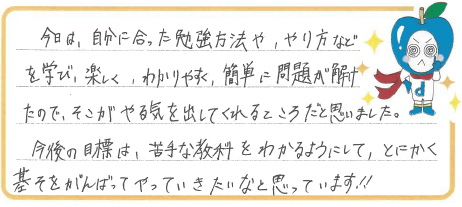 今日は、自分に合った勉強方法や、やり方など
を学び、楽しく、わかりやすく、簡単に問題が解け
たので、そこがやる気を出してくれるところだと思いました。
今後の目標は、苦手な教科をわかるようにして、とにかく
基そをがんばってやっていきたいなと思っています!!
d